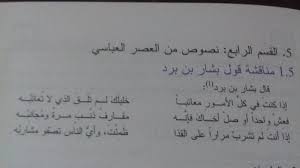 5. القسم الرابع: نصوص من العصر العباسي
1.5 مناقشة قول بشار بن برد
قال بشار بن برد(1):
إذا كنت في كل الأمور معاتباً خليلك لم تلق الذي لا تعاتبه
فعش واحداً أو صل أخاك فإنه مقارف ذنب مرة ومجانبه
إذا أنت لم تشرب مراراً على القذا ظمئت، وأي الناس تصفو مشاربه